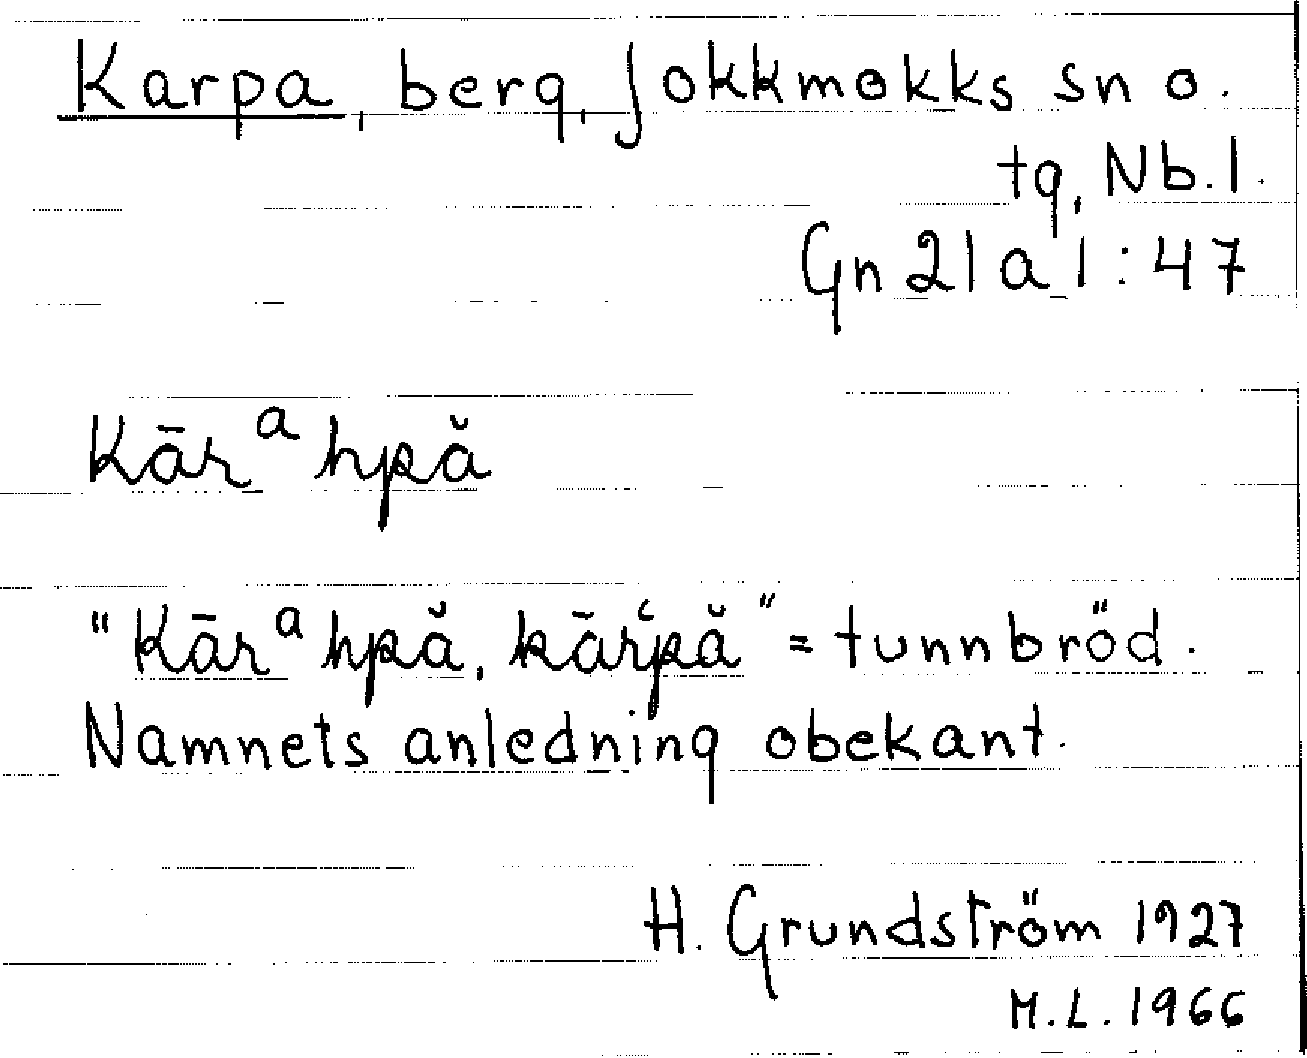 Karpa, berg, Jokkmokks sn o.
tg, Nb.l.
Gn 21 a 1:47
Kārᵃhpă
"Kārᵃhpă, kārʿpă" = tunnbröd.
Namnets anledning obekant.
H. Grundström 1927
M.L. 1966